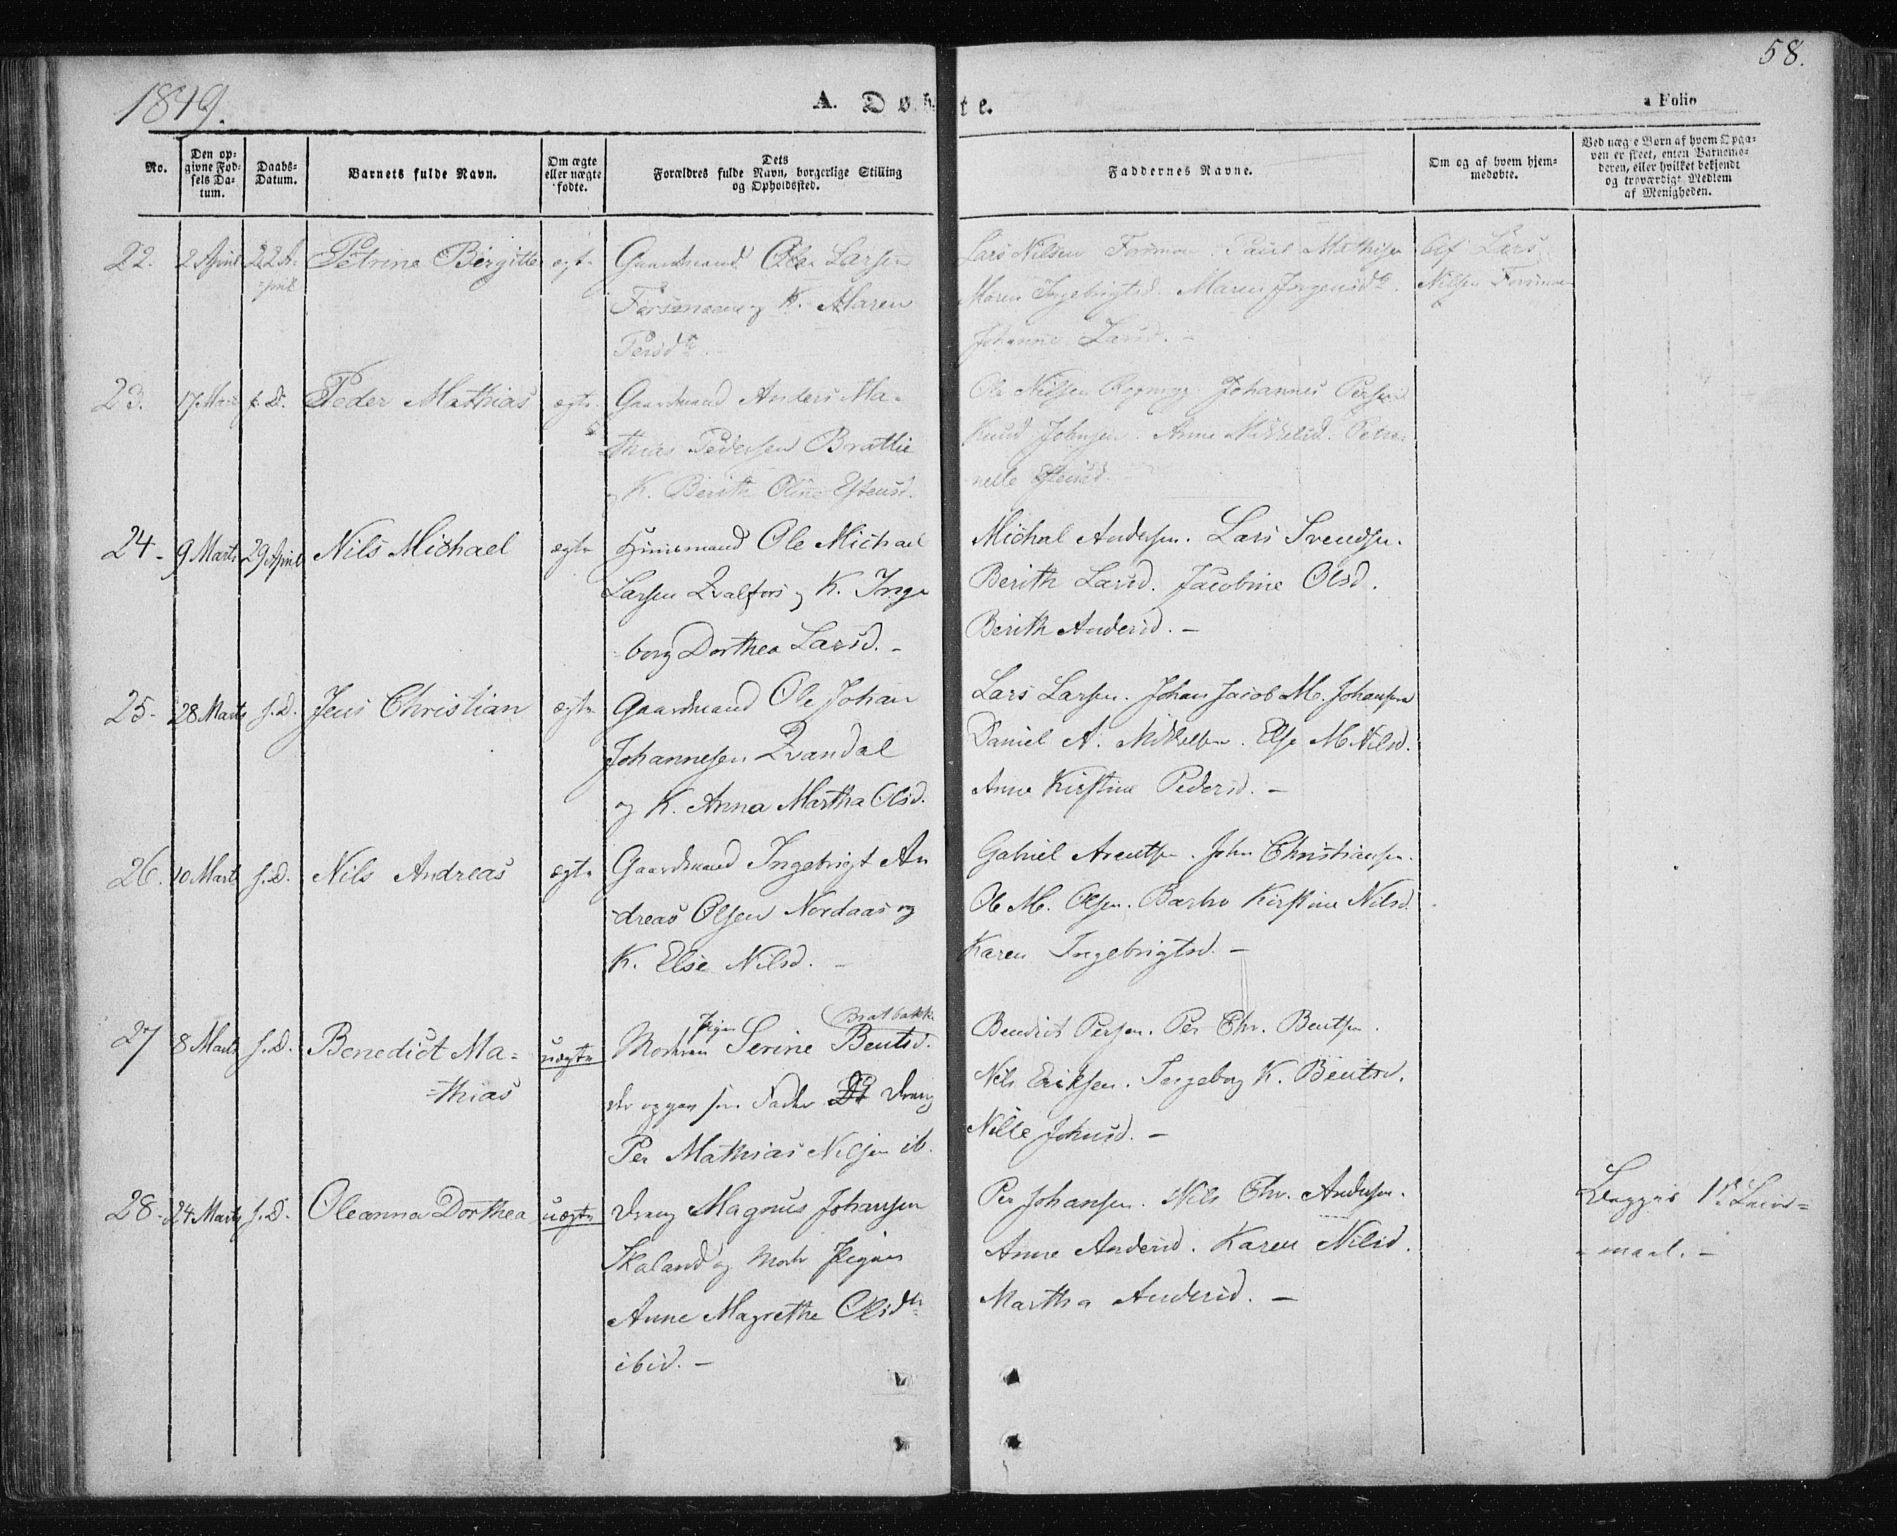 1849.
A. Døbte.
58.
a Folio
No.
Den opgivne Fødsels Datum.
Daabs-Datum.
Barnets fulde Navn.
Om ægte eller uægte fødte.
Dets Forældres fulde Navn, borgerlige Stilling og Opholdssted.
Faddernes Navne.
Om og af hvem hjemmedøbte.
Ved uægte Børn af hvem Opgaven er skeet, enten Barnemoderen, eller hvilket bekjendt og troværdigt Medlem af Menigheden.
22. 2 April 22 April Petrine Birgitte ægte Gaardmand Ole Larsen
og K. Maren
Persdtr
Lars Nilsen Paul
Maren Ingebrigtsd. Maren Jørgensdtr.
Johanne Larsd. -
Af Lars
Nilsen
23. 17 s. D. Peder Mathias ægte Gaardmand Anders Ma-
thias Pedersen Bratlie
K. Berith Oline Estensd.
Ole Nilsen Johannes Persen
Knud Johnsen. Anne Mikkelsd. Petro-
nelle Estensd.
24- 9 Marts 29 April Nils Michael ægte Huusmand Ole Michael
Larsen Qvalfors og K. Inge
borg Dorthea Larsd. -
Michal Andersen. Lars Svendsen.
Berith Larsd. Jacobine Olsd.
Berith Andersd. -
25- 28 Marts s. D. Jens Christian ægte Gaardmand Ole Johan
Johannesen Qvandal
og K. Anna Martha Olsd.
Lars Larsen. Johan Jacob M. Johansen
Daniel A. Mikkelsen. Else M Nilsd.
Anne Kirstine Pedersd. -
26. 10 Marts s. D. Nils Andreas ægte Gaardmand Ingebrigt An
dreas Olsen Nordaas og
K. Else Nilsd. -
Gabriel Arentsen. John Christiansen.
Ole M. Olsen. Barbro Kirstine Nilsd.
Karen Ingebrigtsd. -
27 8 Marts s. D. Benedict Ma-
thias
uægte Moderen Pigen Serine Bentsd. Bratbakk
der opgav som Fader Dreng
Per Mathias Nilsen ib.
Benedict Persen. Per Chr. Bentsen.
Nils Eriksen. Ingeborg K. Bentsd.
Nille Johnsd. -
28- 24 Marts s. D. Oleanna Dorthea uægte Dreng Magnus Johansen
Skaland og Moder Pigen
Anne Magrethe Olsdtr
ibid. -
Per Johansen. Nils Chr. Andersen.
Anne Andersd. Karen Nilsd.
Martha Andersd. -
Begges 1ste Leier=
maal. -